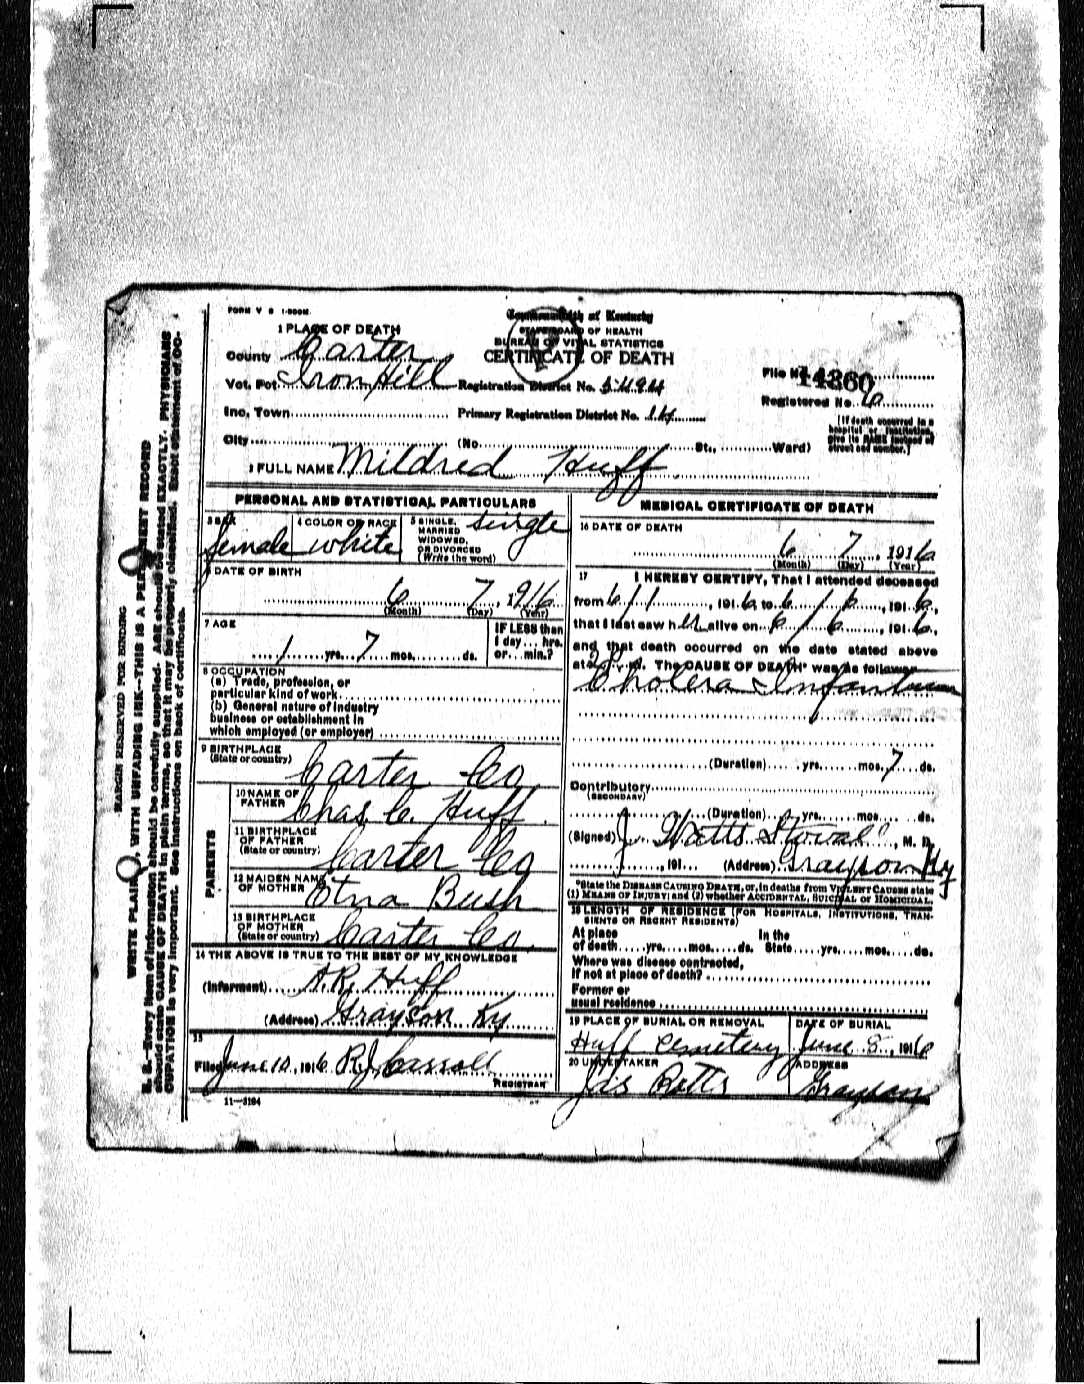 FORM V S 1-500M
Commonwealth of Kentucky
STATE BOARD OF HEALTH
BUREAU OF VITAL STATISTICS
CERTIFICATE OF DEATH
1 PLACE OF DEATH
County Carter
Vot. Pct. Iron Hill Registration District No.
File No. 14360
Inc. Town Primary Registration District No. 14
Registered No. 6
City (No. St., Ward)
[If death occurred in a hospital or institution, give its NAME instead of street and number.]
2 FULL NAME Mildred Huff
PERSONAL AND STATISTICAL PARTICULARS
3 SEX female
4 COLOR OR RACE white
5 SINGLE, MARRIED WIDOWED, OR DIVORCED (Write the word) single
6 DATE OF BIRTH
6 7, 1916
(Month) (Day) (Year)
7 AGE
1 yrs. 7 mos. ds.
IF LESS than 1 day... hrs. or... min.?
8 OCCUPATION
(a) Trade, profession, or
particular kind of work
(b) General nature of industry
business or establishment in
which employed (or employer)
9 BIRTHPLACE
(State or country) Carter Co
PARENTS
10 NAME OF FATHER Chas. C. Huff.
11 BIRTHPLACE OF FATHER (State or country) Carter Co
12 MAIDEN NAME OF MOTHER Etna Bush
13 BIRTHPLACE OF MOTHER (State or country) Carter Co.
14 THE ABOVE IS TRUE TO THE BEST OF MY KNOWLEDGE
(Informant) A.R. Huff
(Address) Grayson Ky
15
Filed June 10, 1916 R.J. Carroll
REGISTRAR
11—3184
MEDICAL CERTIFICATE OF DEATH
16 DATE OF DEATH
6 7, 1916
(Month) (Day) (Year)
17 I HEREBY CERTIFY, That I attended deceased
from 6/1, 1916, to 6/6, 1916,
that I last saw her alive on 6/6, 1916,
and that death occurred on the date stated above
at m. The CAUSE OF DEATH* was as follows
Cholera Infantum
(Duration) yrs. mos. 7 ds.
Contributory
(SECONDARY)
(Duration) yrs. mos. ds.
(Signed) J Watts Stoval, M. D.
, 191 (Address) Grayson Ky
*State the DISEASE CAUSING DEATH, or, in deaths from VIOLENT CAUSES state
(1) MEANS OF INJURY; and (2) whether ACCIDENTAL, SUICIDAL or HOMICIDAL.
18 LENGTH OF RESIDENCE (FOR HOSPITALS, INSTITUTIONS, TRAN-
SIENTS OR RECENT RESIDENTS)
At place In the
of death yrs. mos. ds. State yrs. mos. ds.
Where was disease contracted,
if not at place of death?
Former or
usual residence
19 PLACE OF BURIAL OR REMOVAL Huff Cemetery
DATE OF BURIAL June 8, 1916
20 UNDERTAKER Jas Botts
ADDRESS Grayson
MARGIN RESERVED FOR BINDING
WRITE PLAINLY, WITH UNFADING INK—THIS IS A PERMANENT RECORD
N. B.—Every item of information should be carefully supplied. AGE should be stated EXACTLY. PHYSICIANS
should state CAUSE OF DEATH in plain terms, so that it may be properly classified. Exact statement of OC-
CUPATION is very important. See instructions on back of certificate.